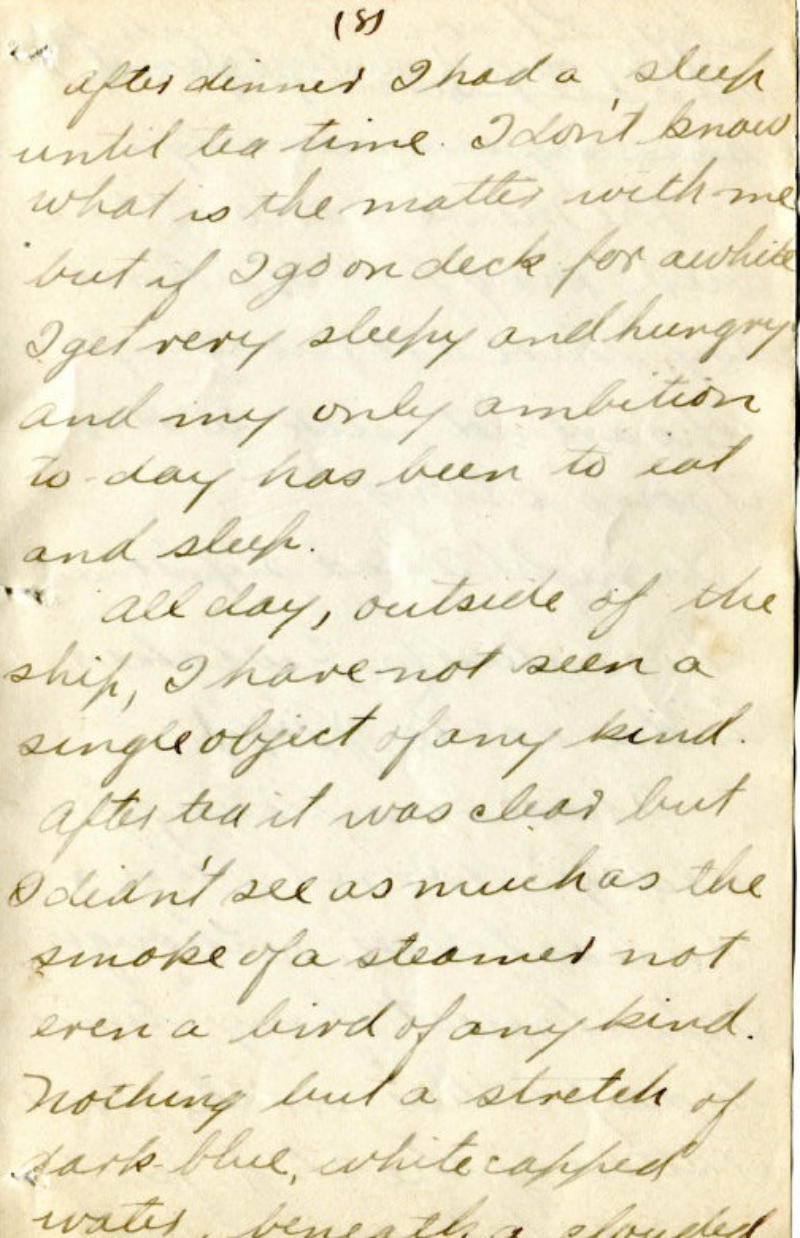 (8)
after dinner I had a sleep
until tea time. I don't know
what is the matter with me
but if I go on deck for awhile
I get very sleepy and hungry
and my only ambition
to-day has been to eat
and sleep.
All day, outside of the
ship, I have not seen a
single object of any kind.
After tea it was clear but
I didn't see as much as the
smoke of a steamer not
even a bird of any kind.
Nothing but a stretch of
dark-blue, white capped
water, beneath a clouded